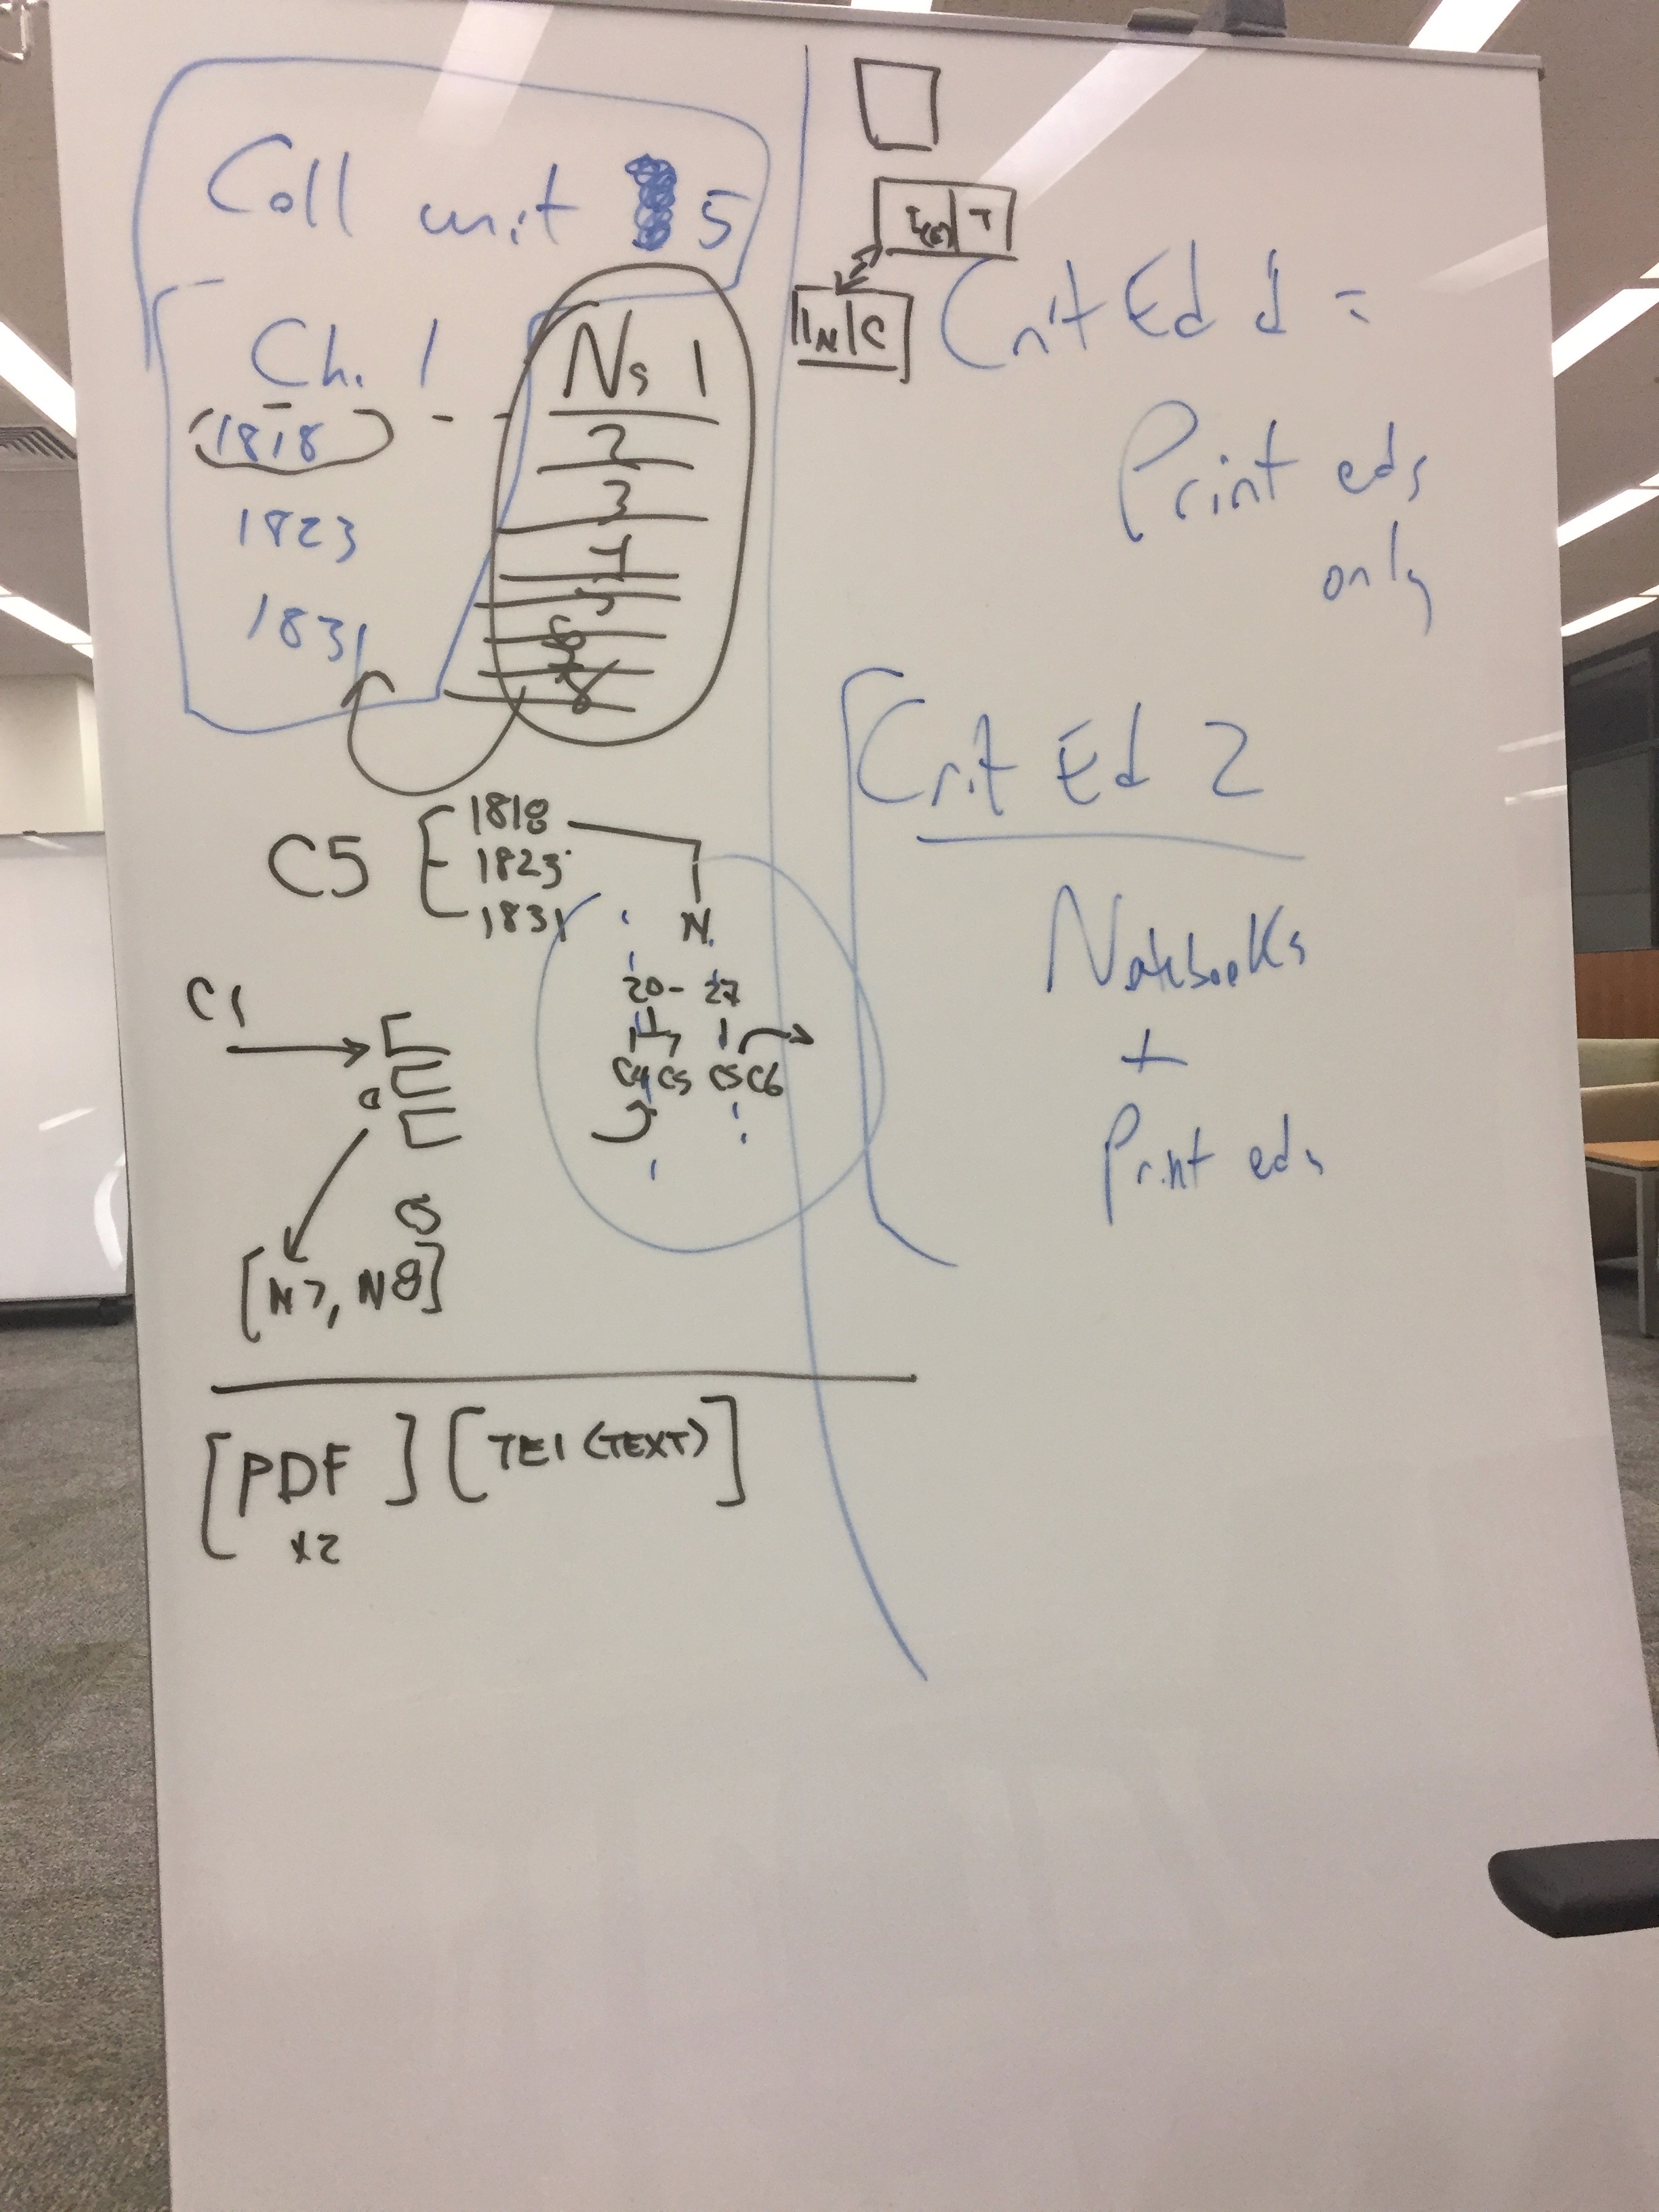 Coll unit 5
Ch. 1
1818
1823
1831
Ns 1
2
3
4
5
6
7
8
C5
1818
1823
1831
N
20- 27
C4 C5 C5 C6
C1
[N7, N8]
[PDF] [TEI (TEXT)]
x2
T
N C
Crit Ed 1 =
Print eds
only
Crit Ed 2
Notebooks
+
Print eds